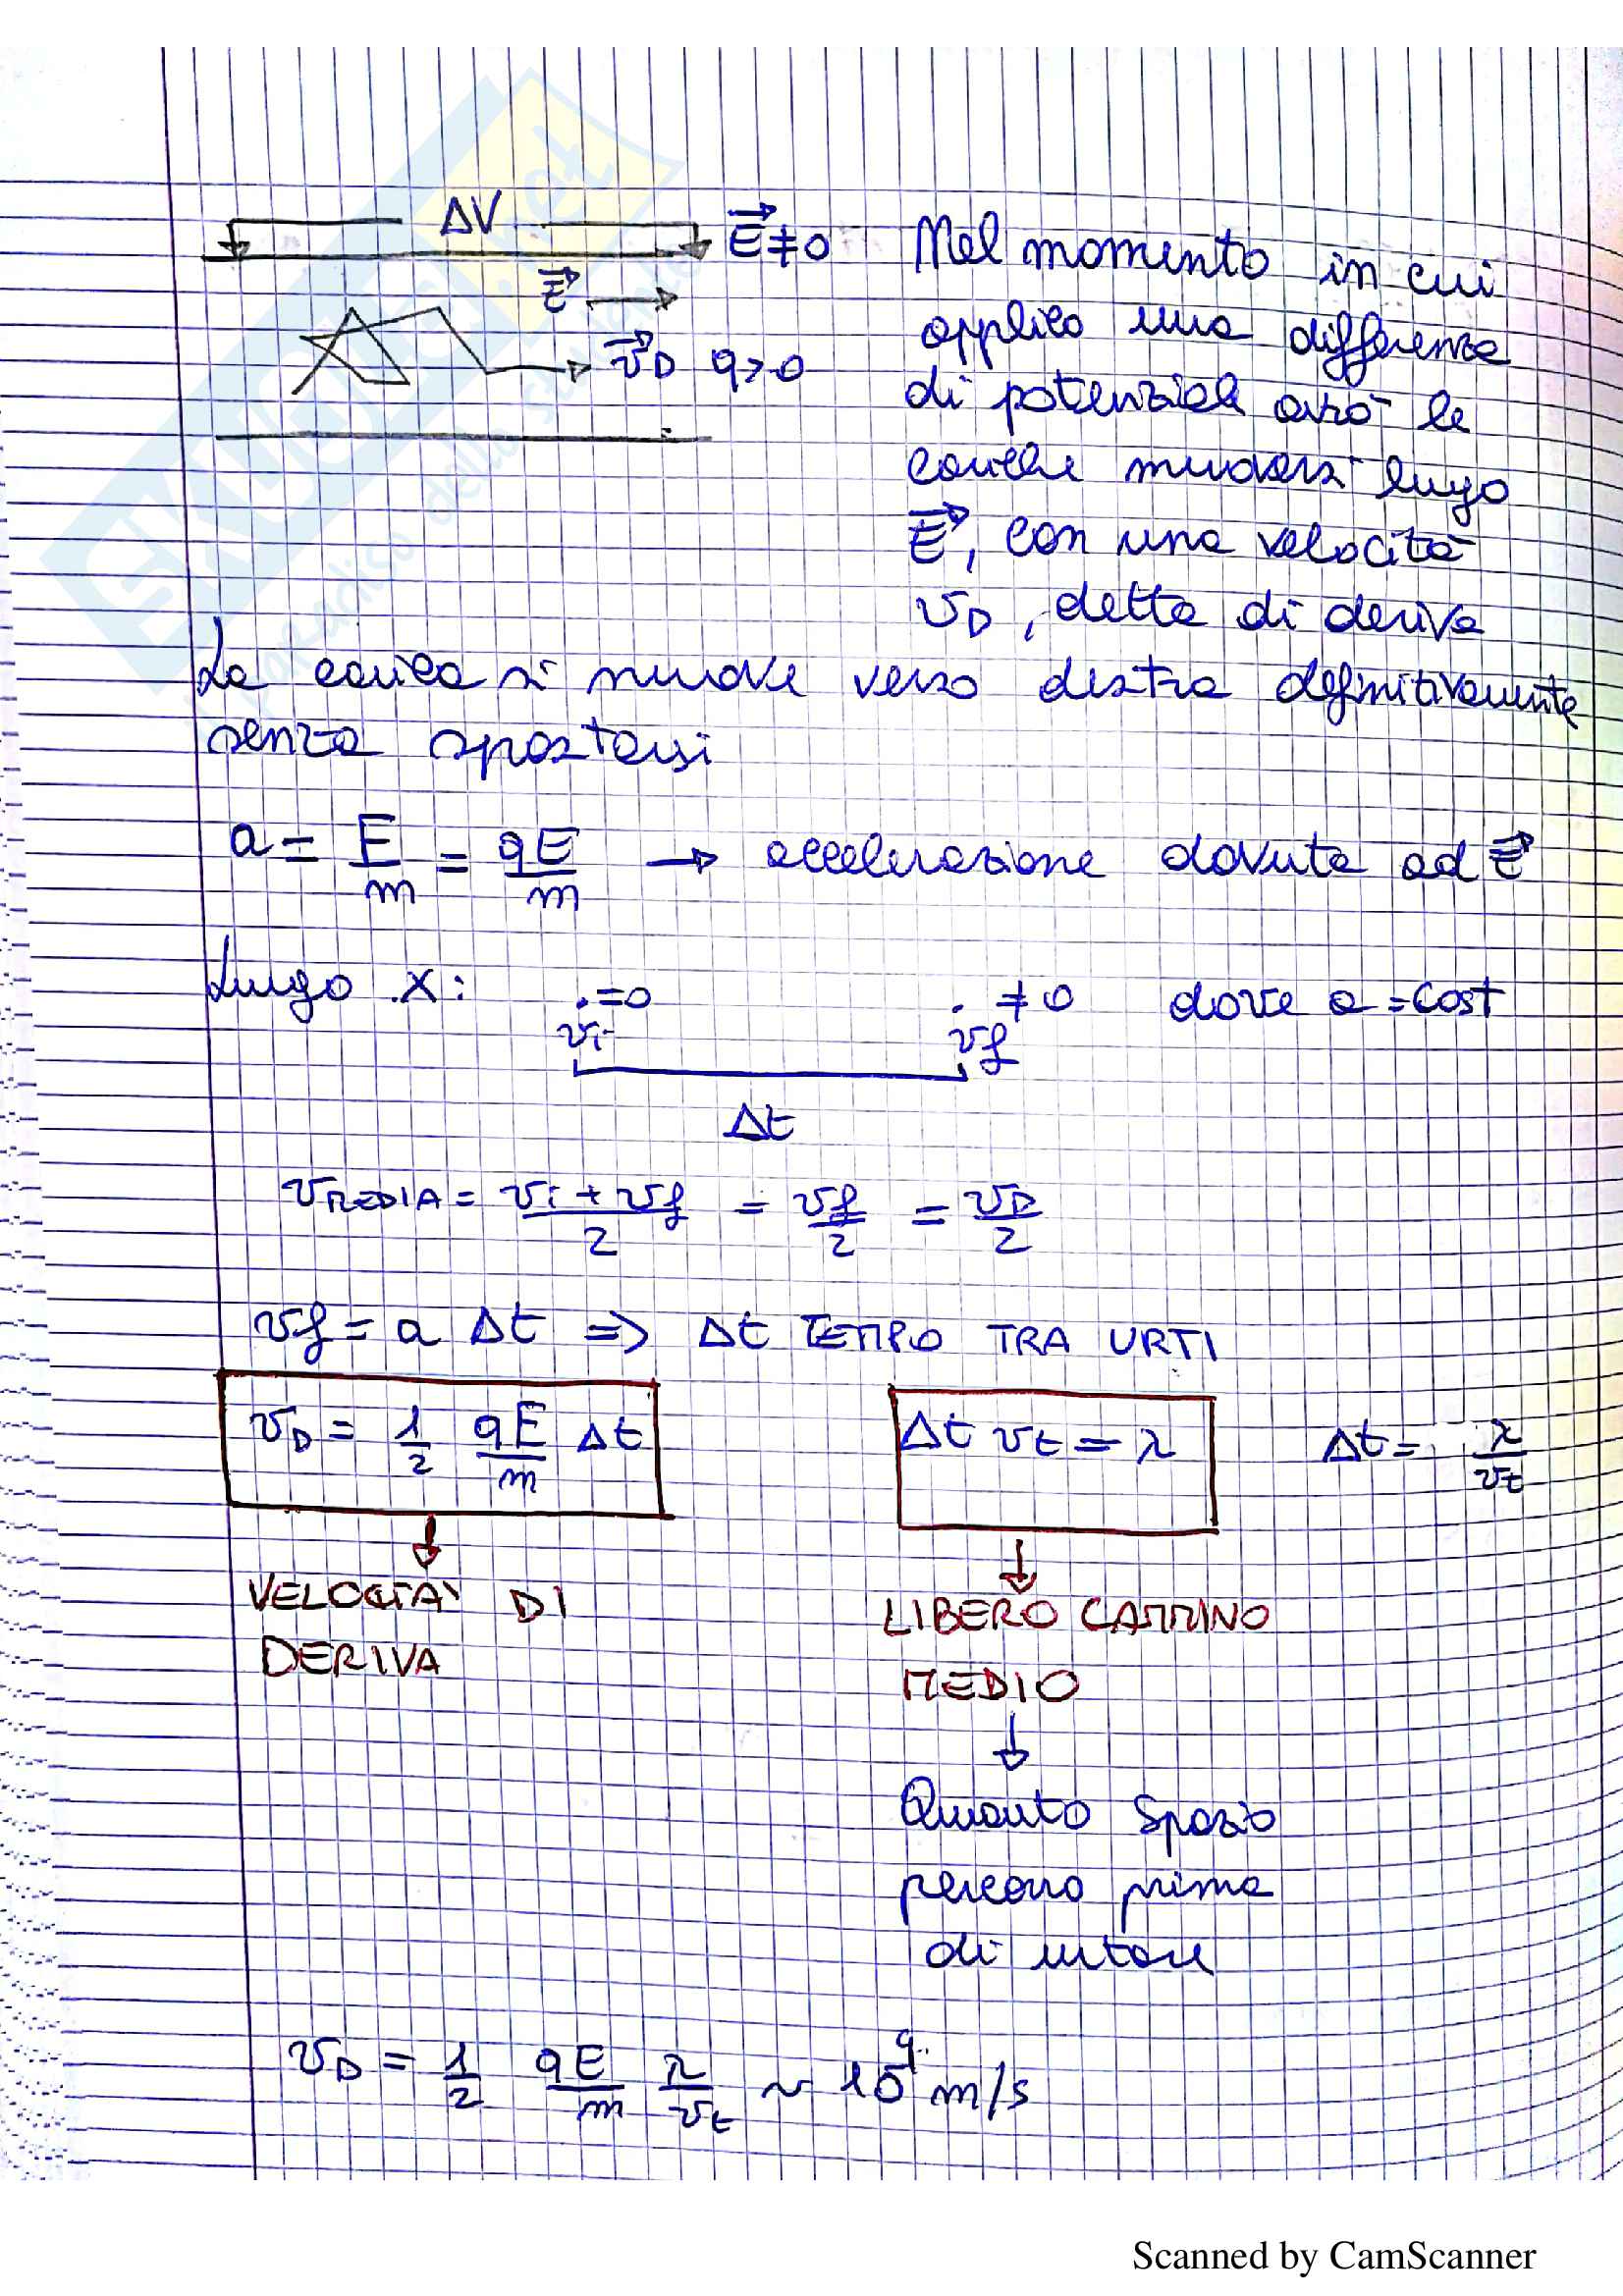 ΔV
E⃗≠0
E⃗
v⃗D q>0
Nel momento in cui
applico una differenza
di potenziale avrò le
cariche muoversi lungo
E⃗, con una velocità
vD, detta di deriva
La carica si muove verso destra definitivamente
senza spostarsi
a = F/m = qE/m → accelerazione dovuta ad E⃗
Lungo x: .=0 . ≠0 dove a = cost
vi vf
Δt
vMEDIA = (vi + vf)/2 = vf/2 = vD/2
vf = a Δt => Δt TEMPO TRA URTI
vD = 1/2 qE/m Δt Δt vt = λ Δt = λ/vt
VELOCITA' DI
DERIVA
LIBERO CAMMINO
MEDIO
Quanto spazio
percorro prima
di urtare
vD = 1/2 qE/m λ/vt ~ m/s
SKUOLA.net
Scanned by CamScanner